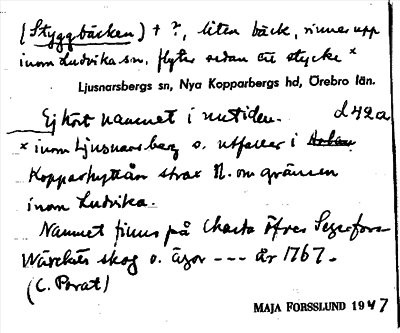 (Styggbäcken) + ?, liten bäck, rinner upp
inom Ludvika sn, flyter sedan ett stycke x
Ljusnarsbergs sn, Nya Kopparbergs hd, Örebro län.
Ej hört namnet i nutiden. d42a
x inom Ljusnarsberg o. utfaller i
Kopparhyttån strax N. om gränsen
inom Ludvika.
Namnet finns på Charta öfver Segerfors
Wärckets skog o. ägor --- år 1767.
(C. Porat)
MAJA FORSSLUND 1947